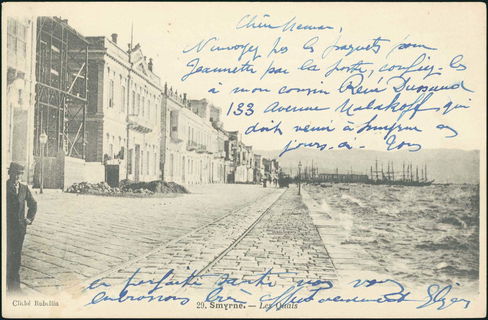 Chère Maman,
N'envoyez pas les paquets pour
Jeannette par la poste, confiez-les
à mon cousin René Dussaud
133 Avenue Malakoff, qui
doit venir à Smyrne ces
jours-ci - Tous
en parfaite santé nous vous
embrassons bien affectueusement
Cliché Rubellin
29. Smyrne. - Les Quais